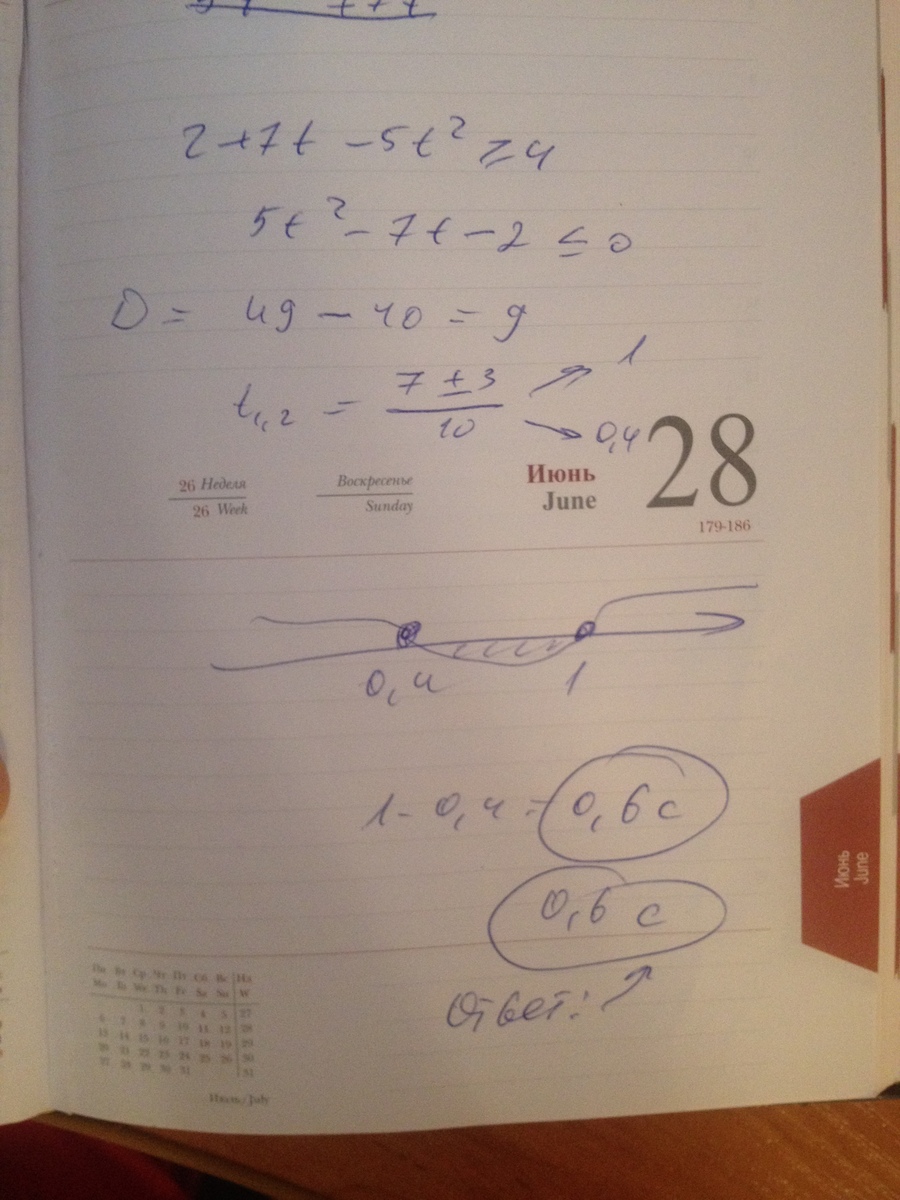 2+7t -5t² ≥4
5t² - 7t - 2 ≤ 0
D = 49 - 40 = 9
t₁,₂ = (7 ± 3)/10 ↗ 1 ↘ 0,4
26 Неделя
26 Week
Воскресенье
Sunday
Июнь
June
28
179-186
0,4 1
1 - 0,4 = 0,6 с
0,6 с
Ответ: ↗
Июнь
June
Пн Вт Ср Чт Пт Сб Вс Нд
Mo Tu We Th Fr Sa Su W
1 2 3 4 5 27
6 7 8 9 10 11 12 28
13 14 15 16 17 18 19 29
20 21 22 23 24 25 26 30
27 28 29 30 31 31
Июль/July